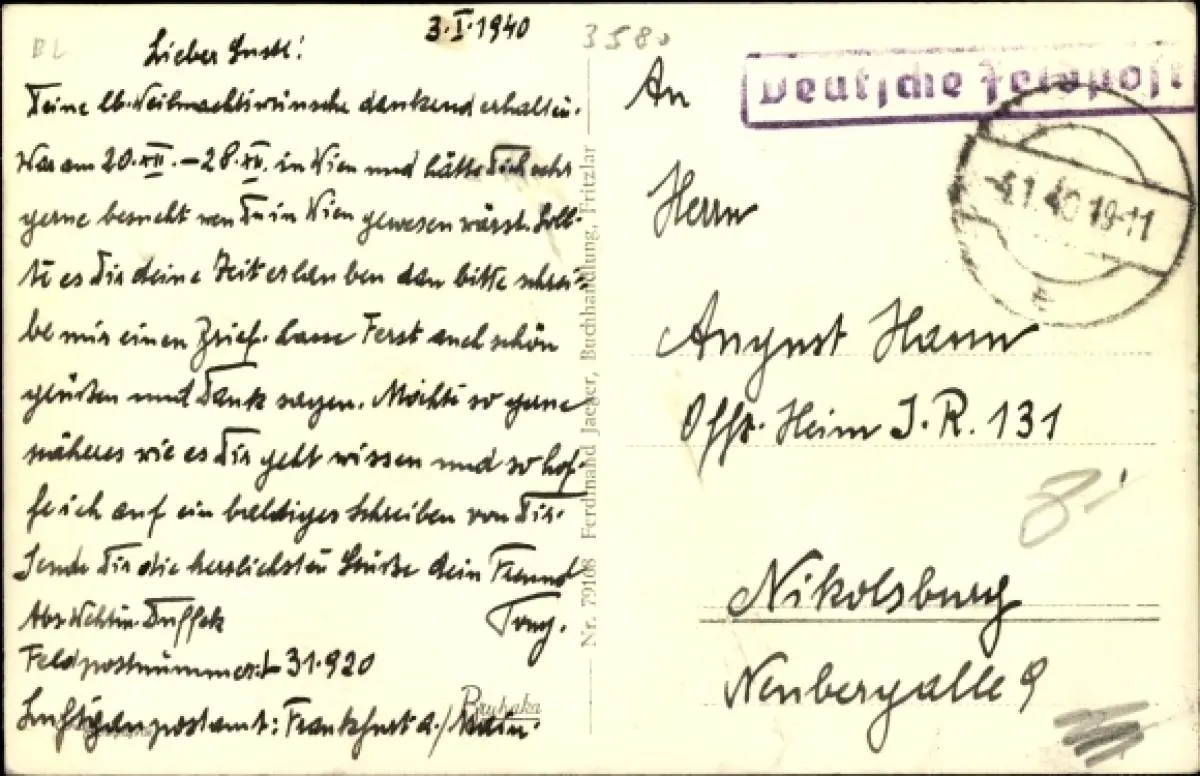 3.I.1940
Lieber Gustl!
Deine lb. Weihnachtswünsche dankend erhalten.
War am 20.XII. – 28.XII. in Wien und hätte Dich sehr
gerne besucht wen Du in Wien gewesen wärst. Soll-
te es Dir deine Zeit erlauben dan bitte schrei-
be mir einen Brief. Lasse Ferst auch schön
grüßen und Dank sagen. Möchte so gerne
näheres wie es Dir geht wissen und so hof-
fe ich auf ein baldiges Schreiben von Dir.
Sende Dir die herzlichsten Grüße dein Freund
Tony.
Abs. Duffek
Feldpostnummer:L-31.920
Luftgaupostamt: Frankfurt a./Main.
Bruhaka
Nr. 79108 Ferdinand Jaeger, Buchhandlung, Fritzlar
3580
BL
An
Deutsche Feldpost
-4.1.40 18-11
Herrn
August Hann
Offz. Heim J.R. 131
8.-
Nikolsburg
Neubergalle 9